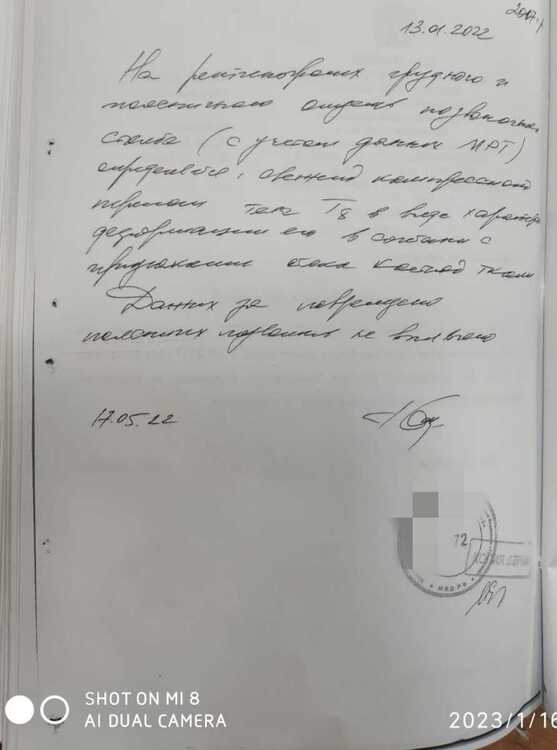 13.01.2022
На рентгенограммах грудного и
поясничного отделов позвоночного
столба (с учетом данных МРТ)
определяется: свежий компрессионный
перелом тела T8 в виде характерной
деформации его в сочетании с
признаками отека костной ткани
Данных за повреждение
поясничных позвонков не выявлено
17.05.22
72
КОПИЯ ВЕРНА
МВД РФ
SHOT ON MI 8
AI DUAL CAMERA
2023/1/16